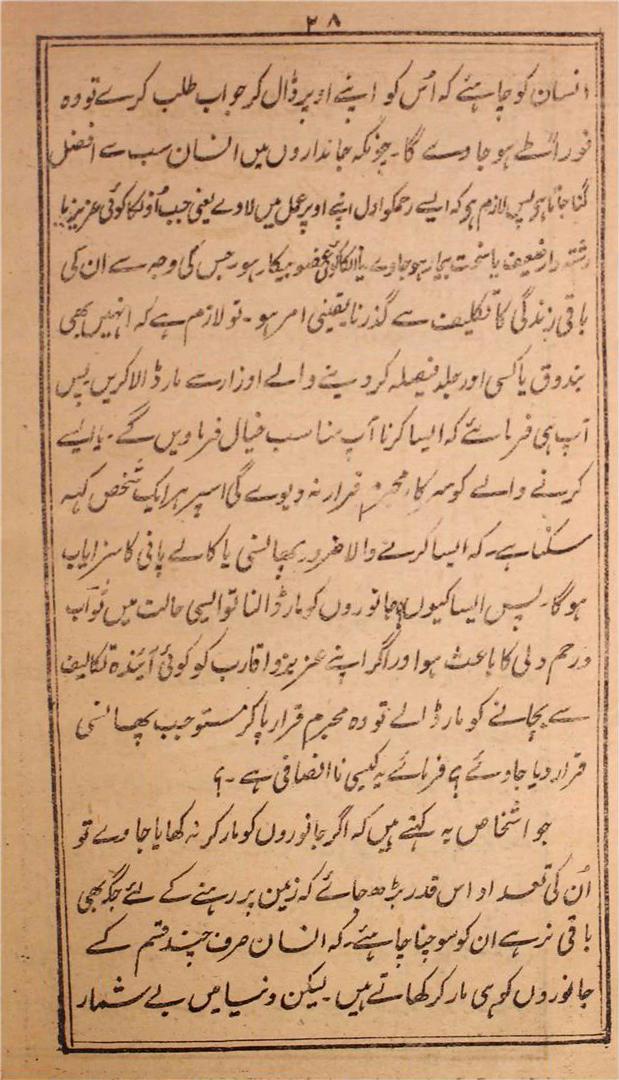 ۲۸
انسان کو چاہئے کہ اُس کو اپنے اوپر ڈال کر جواب طلب کرے تو وہ
فوراً طے ہو جاوے گا۔ چونکہ جانداروں میں انسان سب سے افضل
گنا جاتا ہو پس لازم ہو کہ ایسے رحم کو اول اپنے اوپر عمل میں لاوے یعنی جب اُنکا کوئی عزیز یا
رشتہ دار ضعیف یا سخت بیمار ہو جاوے یا انکا کوئی عضو بیکار ہو۔ جس کی وجہ سے ان کی
باقی زندگی کا تکلیف سے گذرنا یقینی امر ہو۔ تو لازم ہے کہ انہیں بھی
بندوق یا کسی اور جلد فیصلہ کر دینے والے اوزار سے مار ڈالا کریں۔ پس
آپ ہی فرمائے کہ ایسا کرنا آپ مناسب خیال فرماویں گے۔ یا ایسے
کرنے والے کو سرکار مجرم قرار نہ دیوے گی اسپر ہر ایک شخص کہہ
سکتا ہے۔ کہ ایسا کرنے والا ضرور پھانسی یا کالے پانی کا سزایاب
ہوگا۔ پس ایسا کیوں؟ جانوروں کو مار ڈالنا تو ایسی حالت میں ثوآب
ورحم دلی کا باعث ہوا اور اگر اپنے عزیز و اقارب کو کوئی آئندہ تکالیف
سے بچانے کو مار ڈالے تو وہ مجرم قرار پا کر مستوجب پھانسی
قرار دیا جاوئے؟ فرمائے یہ کیسی نا انصافی ہے۔؟
جو اشخاص یہ کہتے ہیں کہ اگر جانوروں کو مار کر نہ کھایا جاوے تو
اُن کی تعداد اس قدر بڑھ جائے کہ زمین پر رہنے کے لئے جگہ بھی
باقی نہ رہے ان کو سوچنا چاہئے۔ کہ انسان صرف چند قسم کے
جانوروں کو ہی مار کر کھاتے ہیں۔ لیکن دنیا میں بے شمار